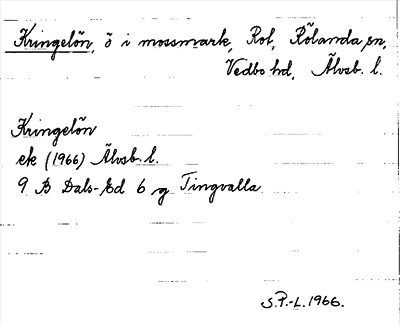 Kringelön, ö i mossmark, Rol, Rölanda sn,
Vedbo hd, Älvsb. l.
Kringelön
ek (1966) Älvsb. l.
9 B Dals-Ed 6 g Tingvalla
S.P.-L. 1966.